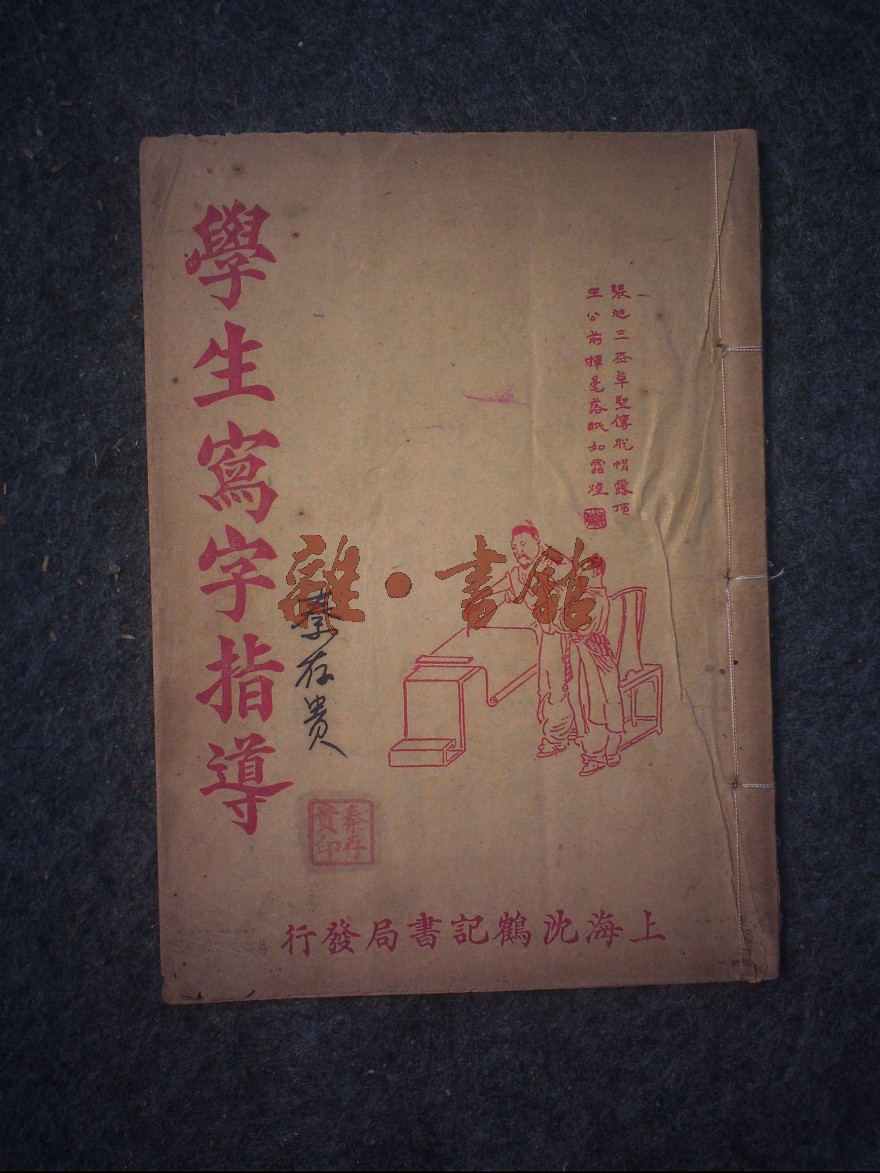 學生寫字指導
張旭三盃草聖傳脫帽露頂
王公前揮毫落紙如雲煙
雜·書館
秦存贵
秦存
貴印
上海沈鶴記書局發行